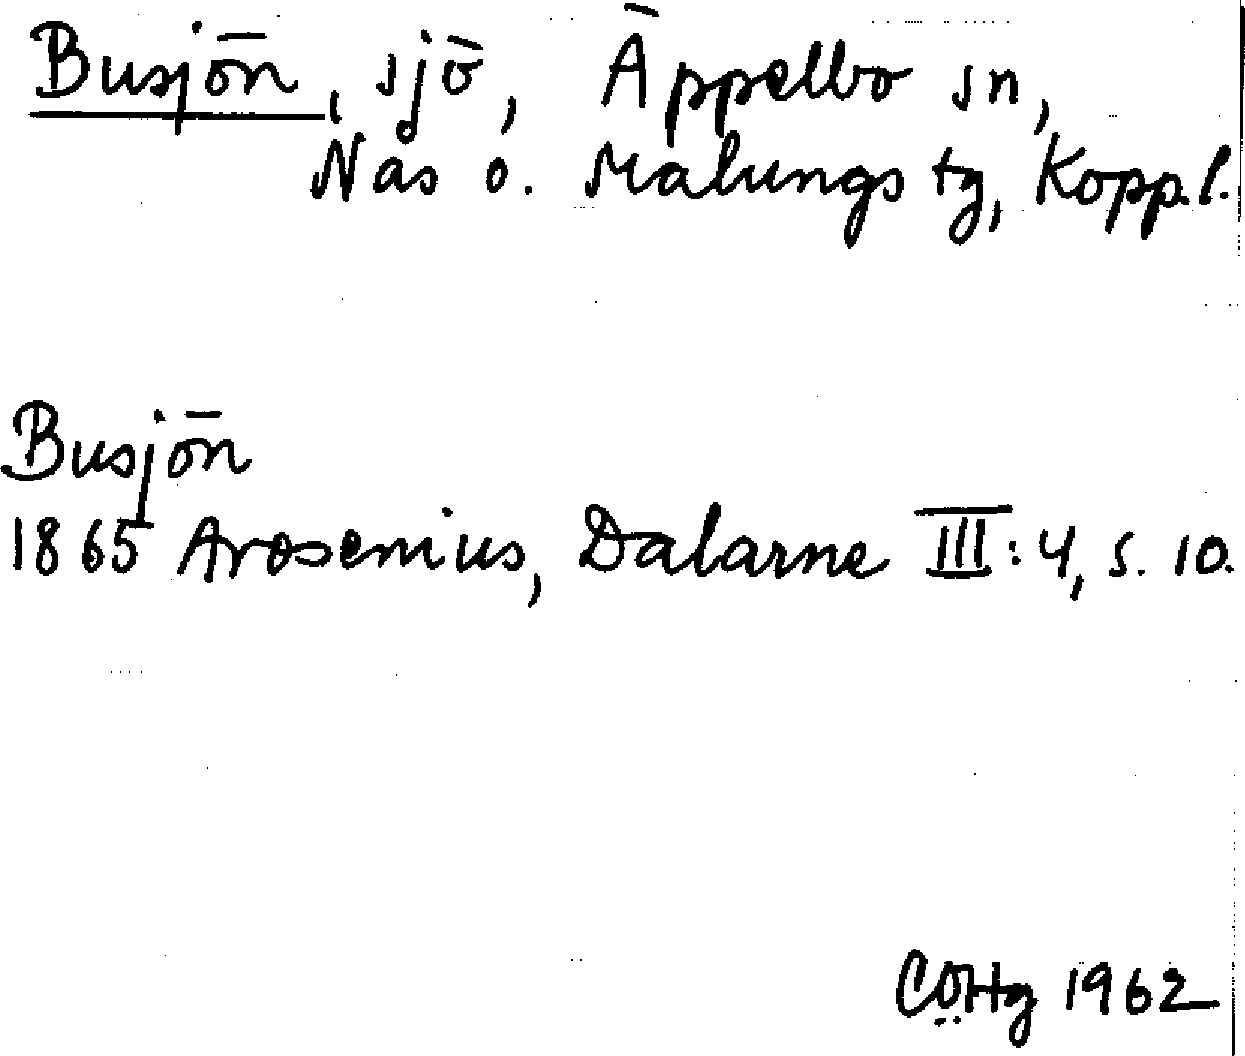 Busjön, sjö, Äppelbo sn,
Nås o. Malungs tg, Kopp. l.
Busjön
1865 Arosenius, Dalarne III: 4, s. 10.
CÖHg 1962